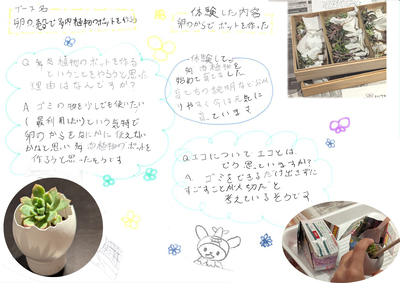 ブース名
卵の殻で多肉植物のポットを作ろう
体験した内容
卵のからでポットを作った
Q.多肉植物のポットを作る
ということをやろうと思った
理由はなんですか?
A ゴミの物を少しでも使いたい
という気持で
卵のからをなにかに使えない
かなと思い多肉植物のポットを
作ろうと思ったそうです
体験して、
多肉植物を
初めて
育て方の説明など分か
りやすく今は元気に
育っています
Q.エコについてエコとは、
どう思っていますか?
A. ゴミをできるだけ出さずに
すごすことが大切だと
考えているそうです